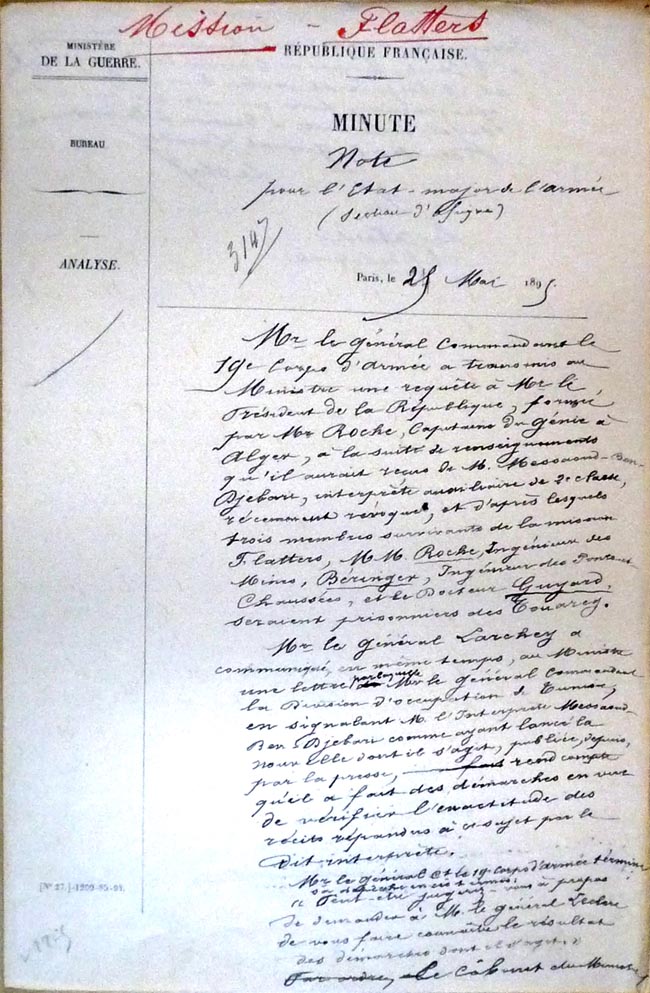 Mission - Flatters
MINISTÈRE
DE LA GUERRE.
RÉPUBLIQUE FRANÇAISE.
BUREAU
MINUTE
Note
pour l'Etat-major de l'armée
(Section d'Afrique)
3147
ANALYSE.
Paris, le 25 Mai 1895.
Mr le général Commandant le
19e Corps d'armée a transmis au
Ministre une requête à Mr le
Président de la République, formée
par Mr Roche, Capitaine du génie à
Alger, à la suite de renseignements
qu'il aurait reçus de M. Messaoud-Ben-
Djebari, interprète auxiliaire de 2e classe,
récemment révoqué, et d'après lesquels
trois membres survivants de la mission
Flatters, MM Roche, Ingénieur des
Mines, Béringer, Ingénieur des Ponts et
Chaussées, et le Docteur Guyard,
seraient prisonniers des Touareg.
Mr le général Larchey a
communiqué, en même temps, au Ministre
une lettre par laquelle Mr le général Commandant
la Division d'occupation de Tunisie,
en signalant M. l'Interprète Messaoud-
Ben-Djebari comme ayant lancé la
nouvelle dont il s'agit, publiée, depuis,
par la presse, rend compte
qu'il a fait des démarches en vue
de vérifier l'exactitude des
récits répandus à ce sujet par le
dit interprète.
Mr le général Ct le 19e corps d'armée termine
sa en ces termes:
"Peut-être jugerez-vous à propos
de demander à M. le général Leclerc
de vous faire connaître le résultat
des démarches dont il s'agit."
Par ordre, le Cabinet du Ministre
[N° 27.]-1209-95-94.